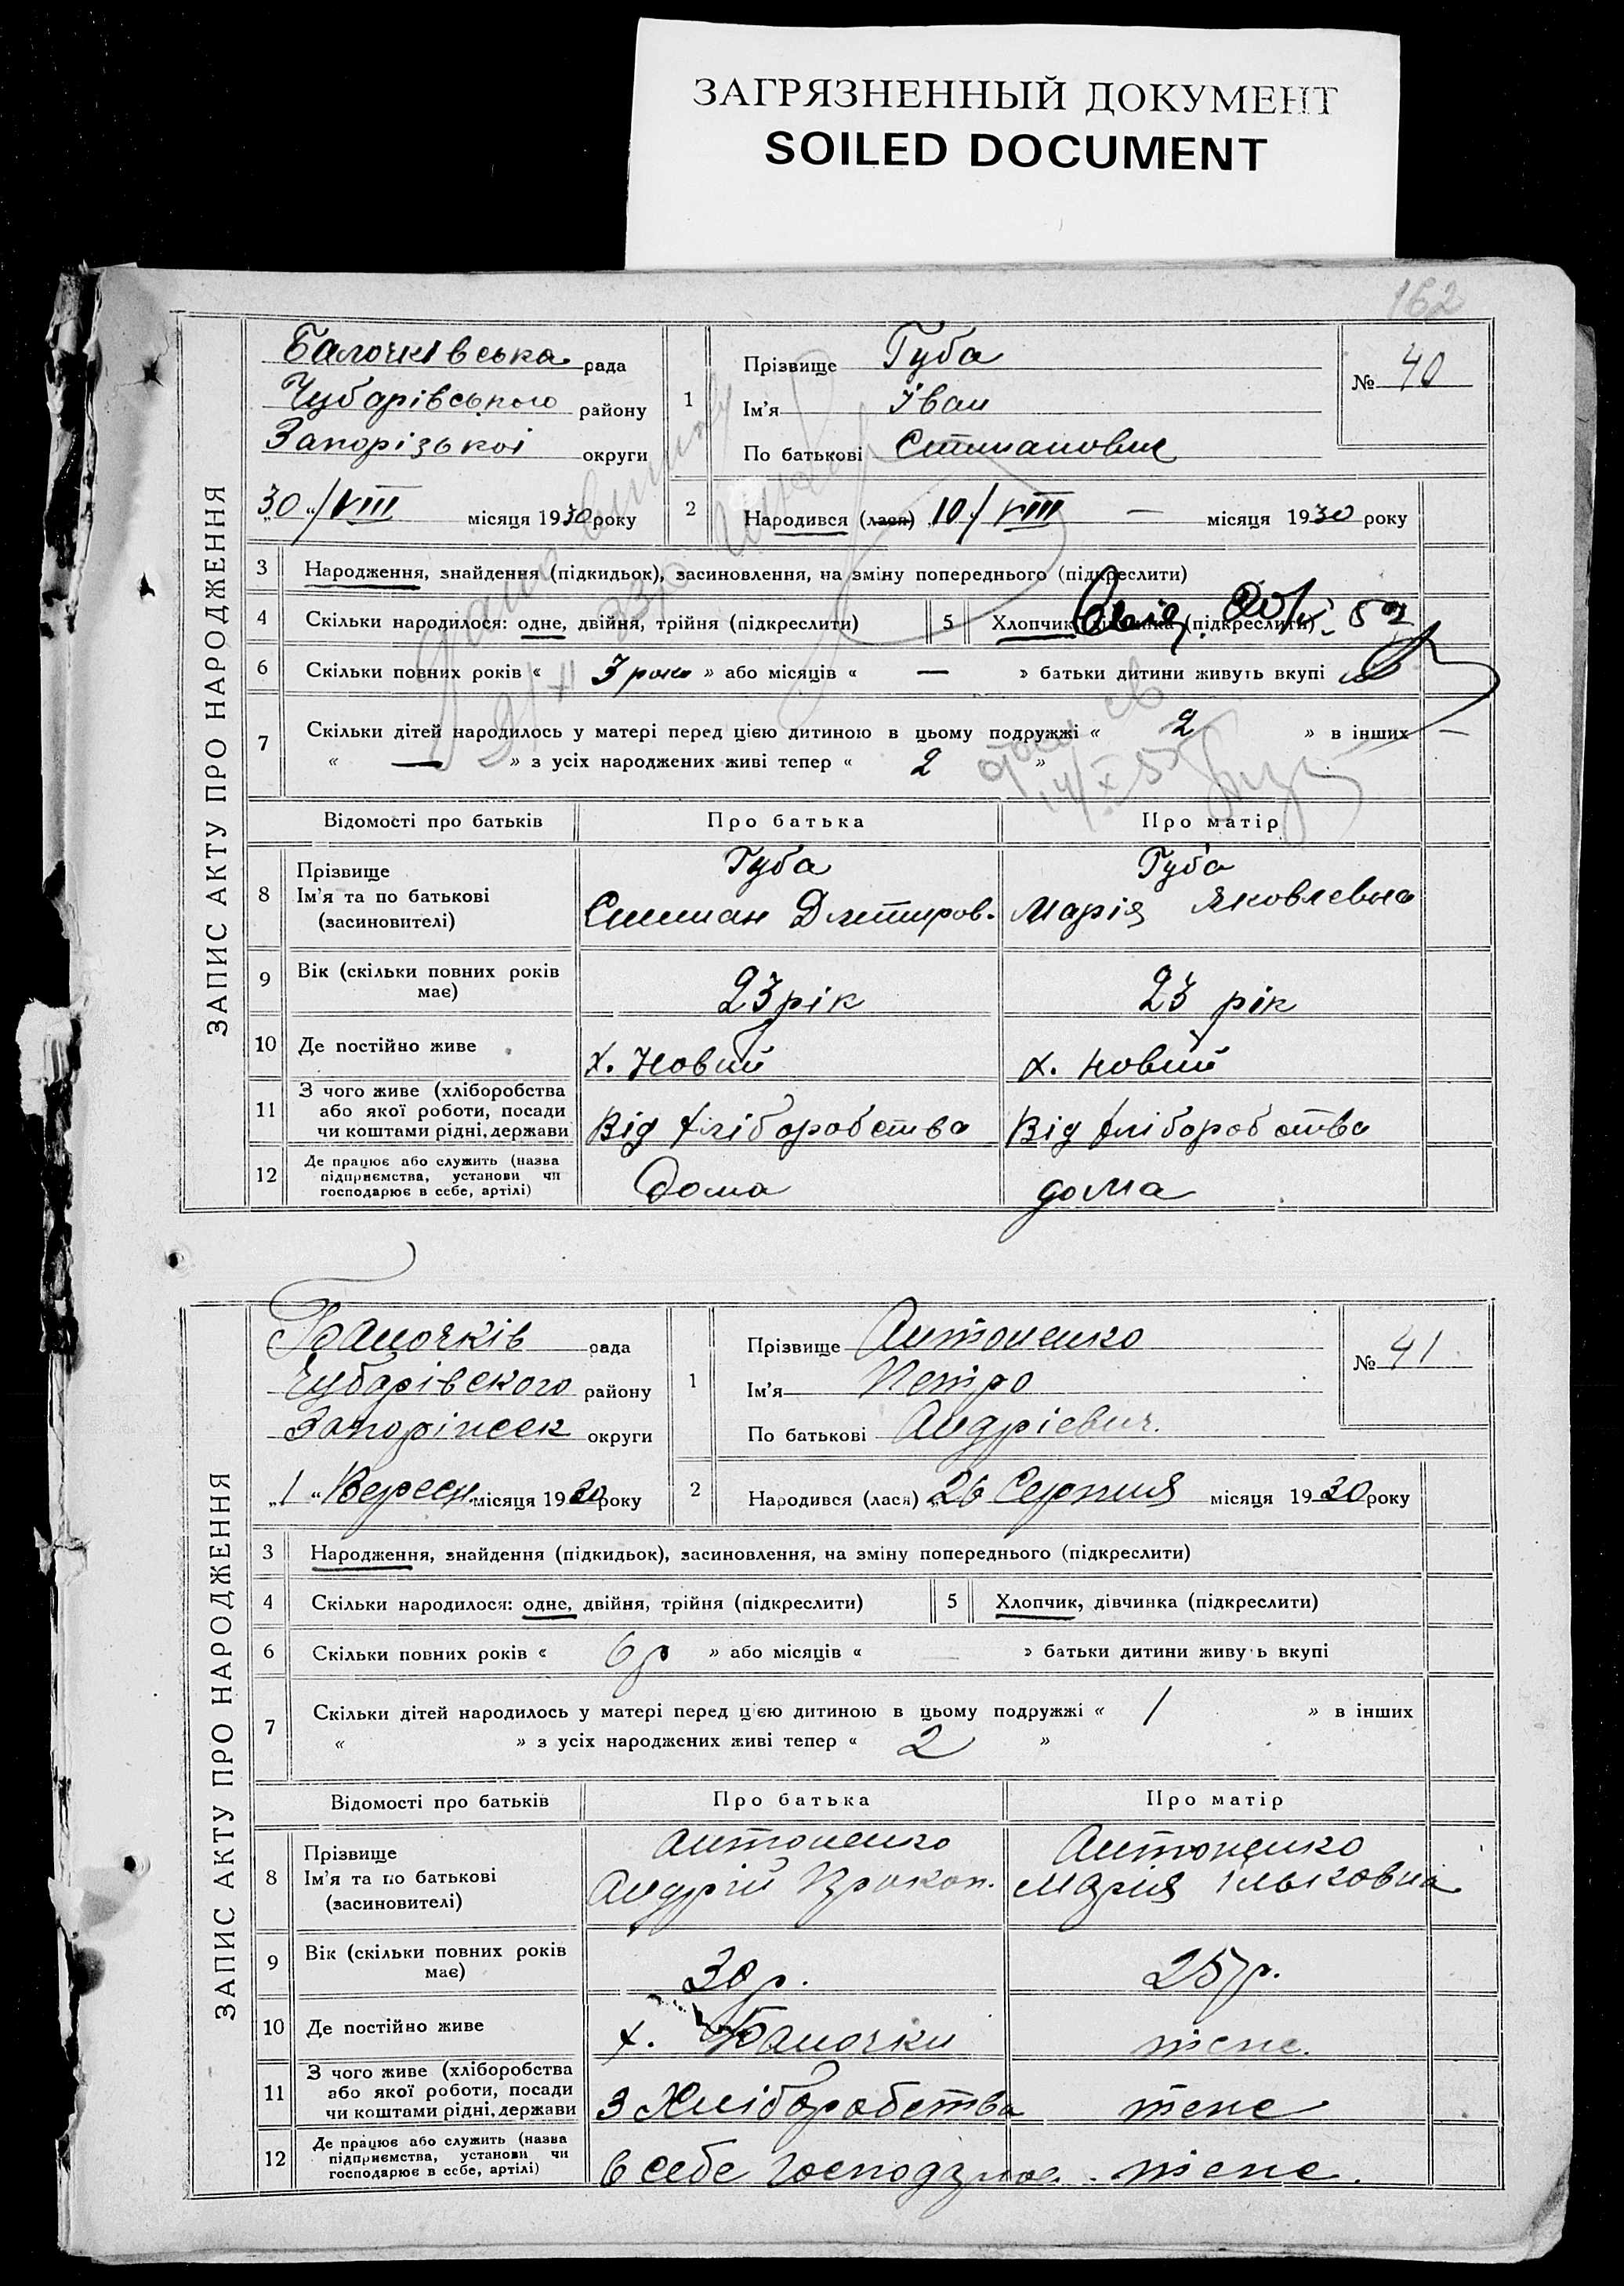 ЗАГРЯЗНЕННЫЙ ДОКУМЕНТ
SOILED DOCUMENT
162
ЗАПИС АКТУ ПРО НАРОДЖЕННЯ
Балочківська рада
Чубарівського району
Запорізької округи
„30“/VIII місяця 1930 року
1 Прізвище Губа
Ім'я Іван
По батькові Степанович
№ 40
2 Народився (лася) 10/VIII — місяця 1930 року
3 Народження, знайдення (підкидьок), засиновлення, на зміну попереднього (підкреслити)
4 Скільки народилося: одне, двійня, трійня (підкреслити) 5 Хлопчик, дівчинка (підкреслити)
6 Скільки повних років « 3 роки » або місяців « — » батьки дитини живуть вкупі
7 Скільки дітей народилось у матері перед цією дитиною в цьому подружжі « 2 » в інших —
« — » з усіх народжених живі тепер « 2 »
Відомості про батьків Про батька Про матір
8 Прізвище Губа Губа
Ім'я та по батькові Степан Дмитиров. Марія Яковлевна
(засновителі)
9 Вік (скільки повних років має) 23 рік 23 рік
10 Де постійно живе х. Новий х. Новий
11 З чого живе (хліборобства
або якої роботи, посади
чи коштами рідні, держави Від хліборобства Від хліборобства
12 Де працює або служить (назва
підприємства, установи чи
господарює в себе, артілі) Дома дома
ЗАПИС АКТУ ПРО НАРОДЖЕННЯ
Балочків рада
Чубарівского району
округи
„1“ Вересн місяця 1930 року
1 Прізвище Антоненко
Ім'я Петро
По батькові Андрієвич.
№ 41
2 Народився (лася) „26 Серпня місяця 1930 року
3 Народження, знайдення (підкидьок), засиновлення, на зміну попереднього (підкреслити)
4 Скільки народилося: одне, двійня, трійня (підкреслити) 5 Хлопчик, дівчинка (підкреслити)
6 Скільки повних років « 6 р » або місяців « — » батьки дитини живуть вкупі
7 Скільки дітей народилось у матері перед цією дитиною в цьому подружжі « 1 » в інших
« » з усіх народжених живі тепер « 2 »
Відомості про батьків Про батька Про матір
8 Прізвище Антоненко Антоненко
Ім'я та по батькові Андрій Прокоп. Марія Ільковна
(засиновителі)
9 Вік (скільки повних років має) 30 р. 25 р.
10 Де постійно живе х. Балочки теже.
11 З чого живе (хліборобства
або якої роботи, посади
чи коштами рідні, держави З Хліборобства теже
12 Де працює або служить (назва
підприємства, установи чи
господарює в себе, артілі) в себе теже.